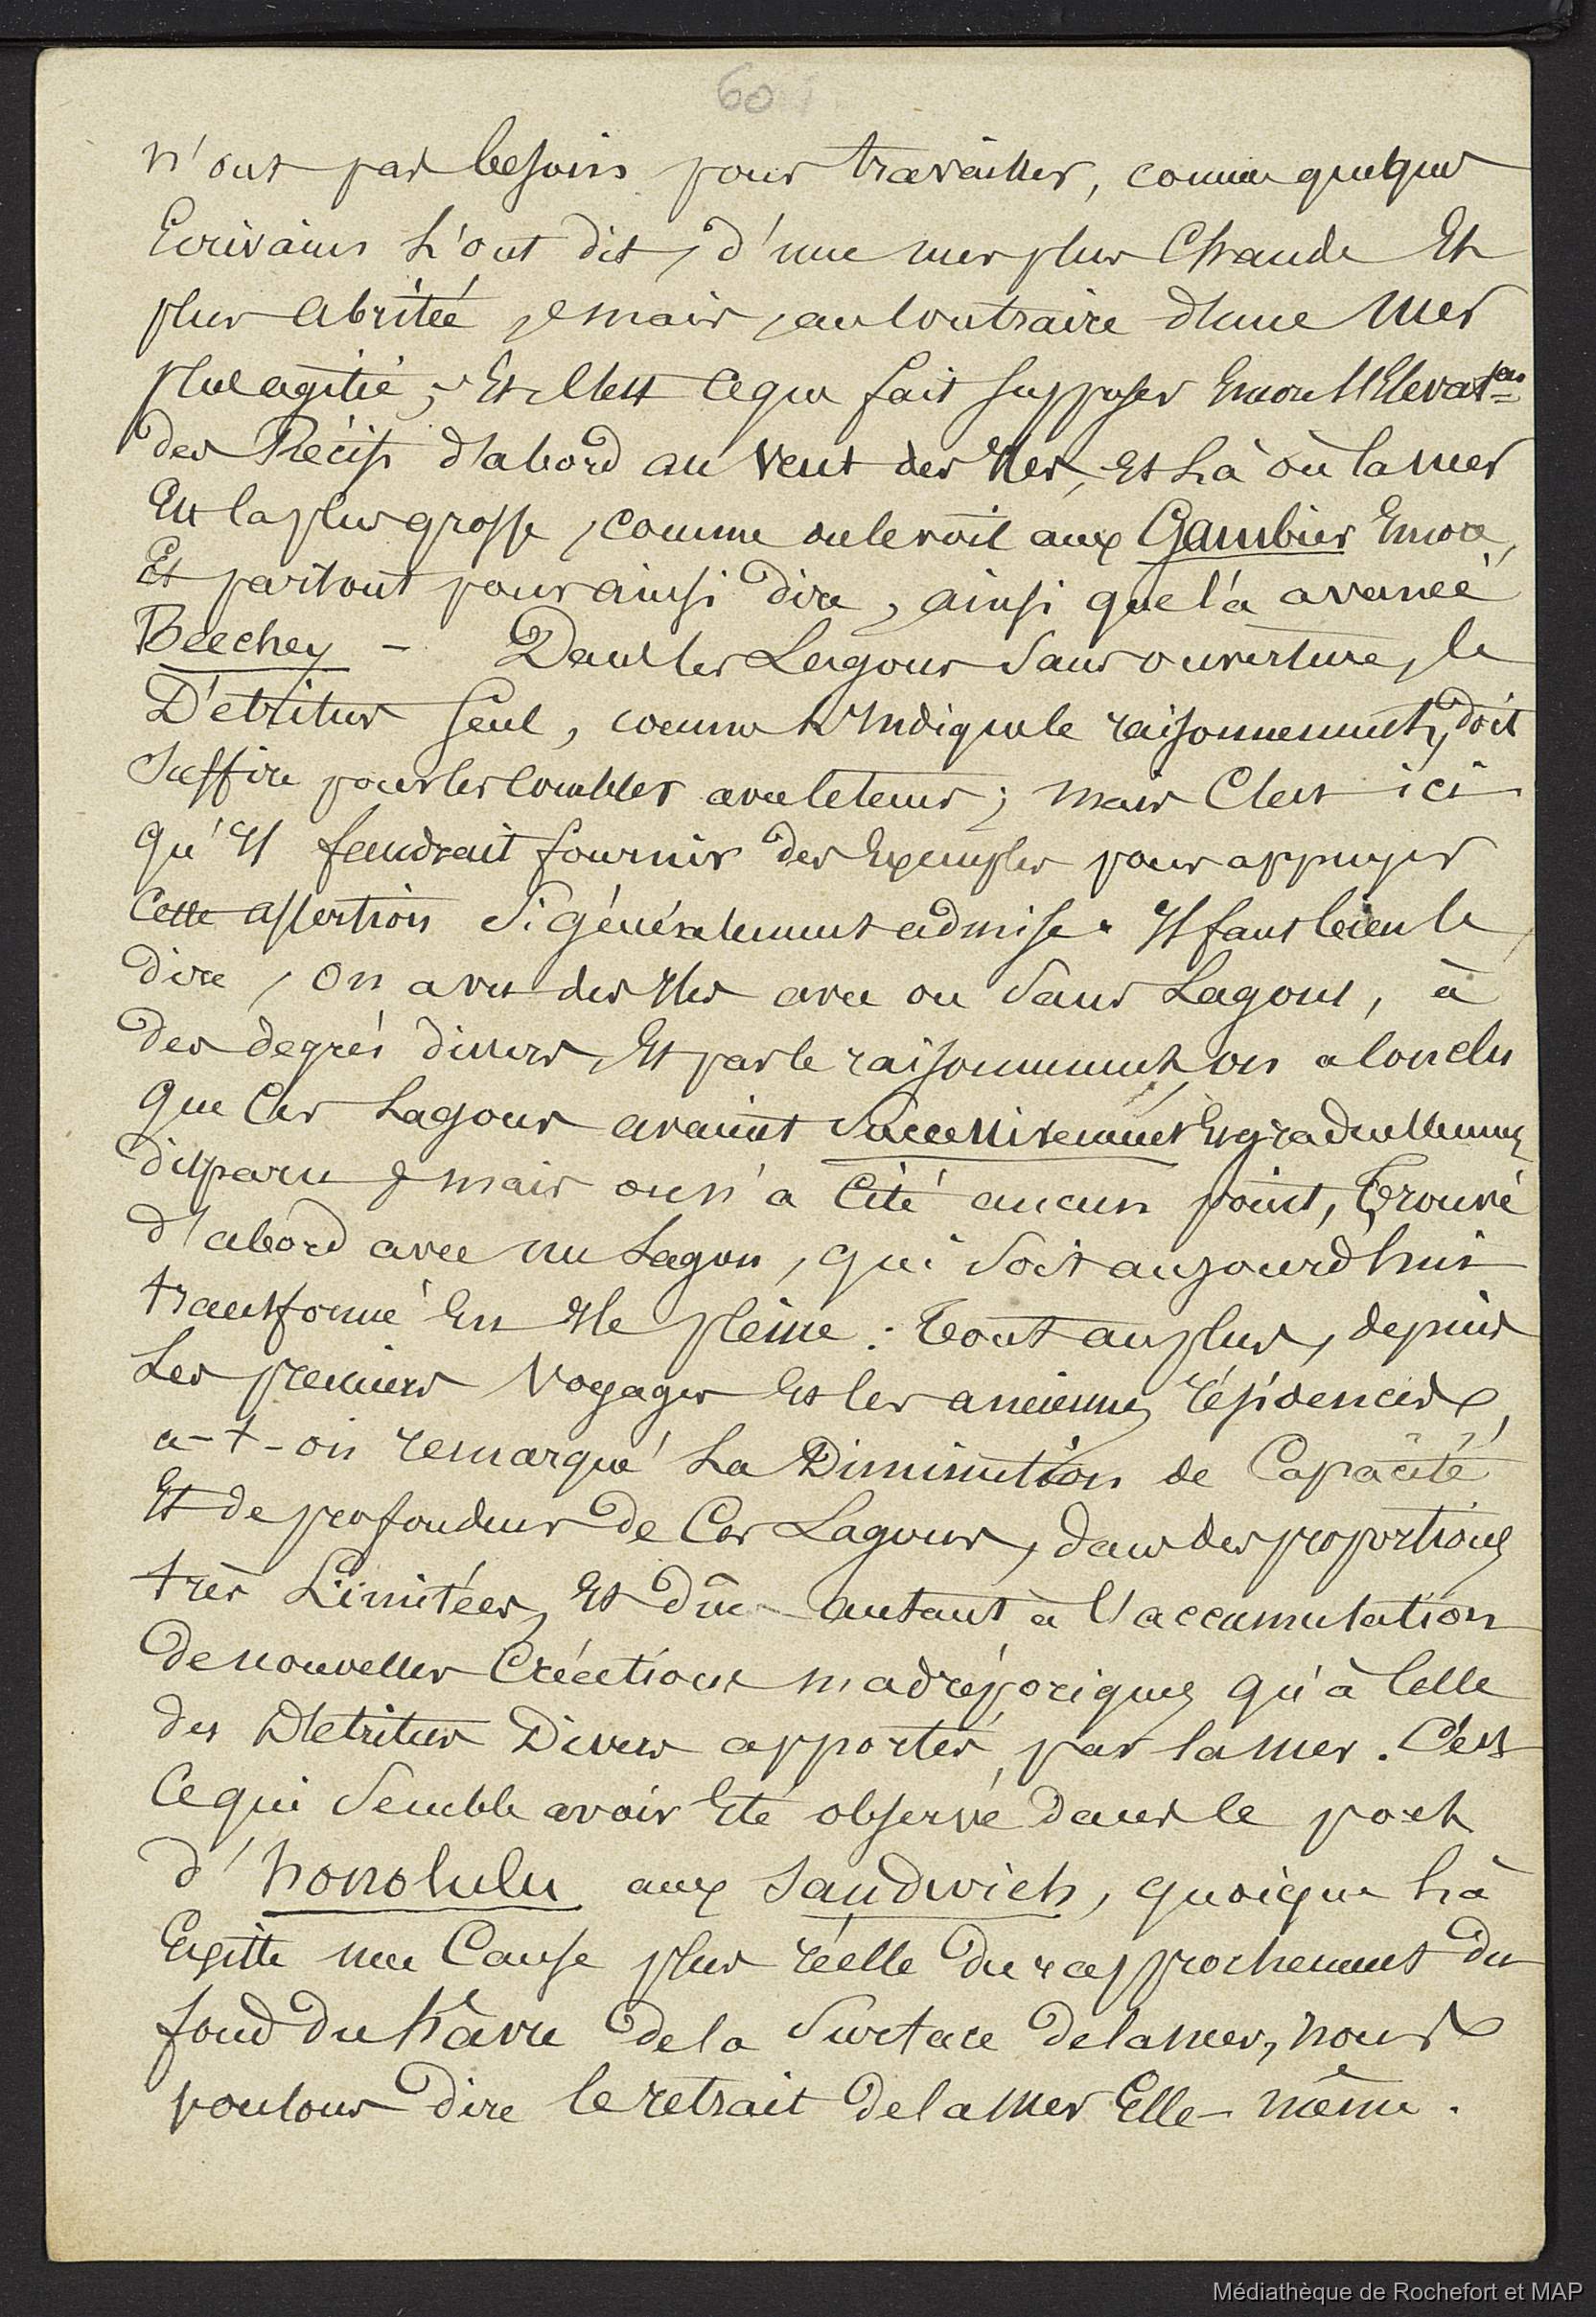 60
n'ont pas besoin pour travailler, comme quelques
Ecrivains L'ont dit, d'une mer plus Chaude Et
plus abritée, mais, au Contraire d'une Mer
plus agitée; Et C'est Ce qui fait supposer Encore l'Elevaton
des Récifs d'abord au Vent des Iles, Et Là où la mer
Est la plus grosse, comme on le voit aux Gambier Encore,
Et partout pour ainsi dire, ainsi que l'a avancé
Beechey - Dans les Lagons Sans ouverture, le
Détritus Seul, comme L'Indique le raisonnement, doit
Suffire pour les Combler avec le tems; mais C'est ici
qu'Il faudrait fournir des Exemples pour appuyer
Cette assertion Si généralement admise. Il faut bien le
dire, On a vu des Iles avec ou Sans Lagons, à
des degrés divers, Et par le raisonnement on a Conclu
que Ces Lagons avaient Successivement Et graduellement
disparu; mais on n'a Cité aucun point, Trouvé
d'abord avec un Lagon, qui Soit aujourd'hui
transformé En Ile pleine : Tout au plus, depuis
Les premiers Voyages Et les anciennes résidences,
a-t-on remarqué La Diminution de Capacité
Et de profondeur de Ces Lagons, dans des proportions
très Limitées, Et dûe autant à l'accumulation
de nouvelles Créations madréporiques qu'à Celle
des Détritus Divers apportés, par la mer. C'est
Ce qui Semble avoir Eté observé dans le port
d'honolulu aux Sandwich, quoique Là
Existe une Cause plus réelle du rapprochement du
fond du hâvre de la Surface de la mer, nous
voulons dire le retrait de la Mer Elle-même.
Médiathèque de Rochefort et MAP